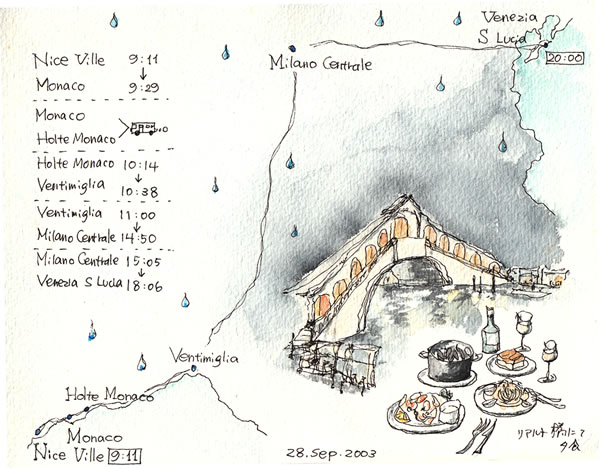 Nice Ville 9:11
Monaco 9:29
Monaco
Holte Monaco
Holte Monaco 10:14
Ventimiglia 10:38
Ventimiglia 11:00
Milano Centrale 14:50
Milano Centrale 15:05
Venezia S Lucia 18:06
Venezia
S Lucia
20:00
Milano Centrale
Ventimiglia
Holte Monaco
Monaco
Nice Ville 9:11
28.Sep.2003
リアルト橋
夕食